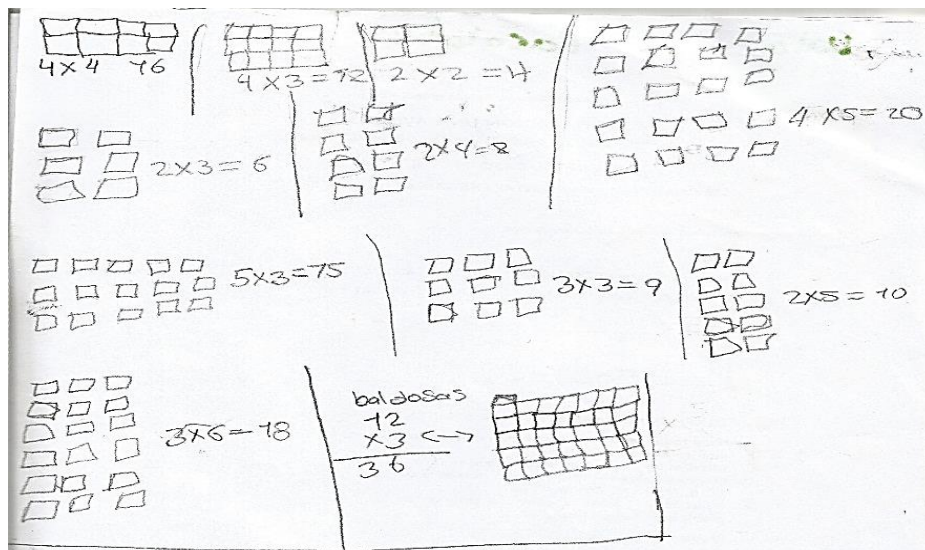 4×4 16
4×3=12
2×2=4
2×3=6
2×4=8
4×5=20
5×3=15
3×3=9
2×5=10
3×6=18
baldosas
12
×3
36